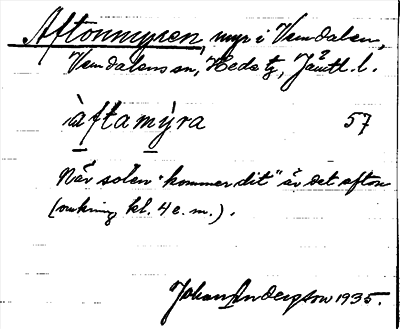 Aftonmyren, myr i Vemdalen,
Vemdalens sn, Hede tg, Jämtl. l.
àftamỳra 57
När solen "kommer dit" är det afton
(omkring kl. 4 e. m.).
Johan Andersson 1935.